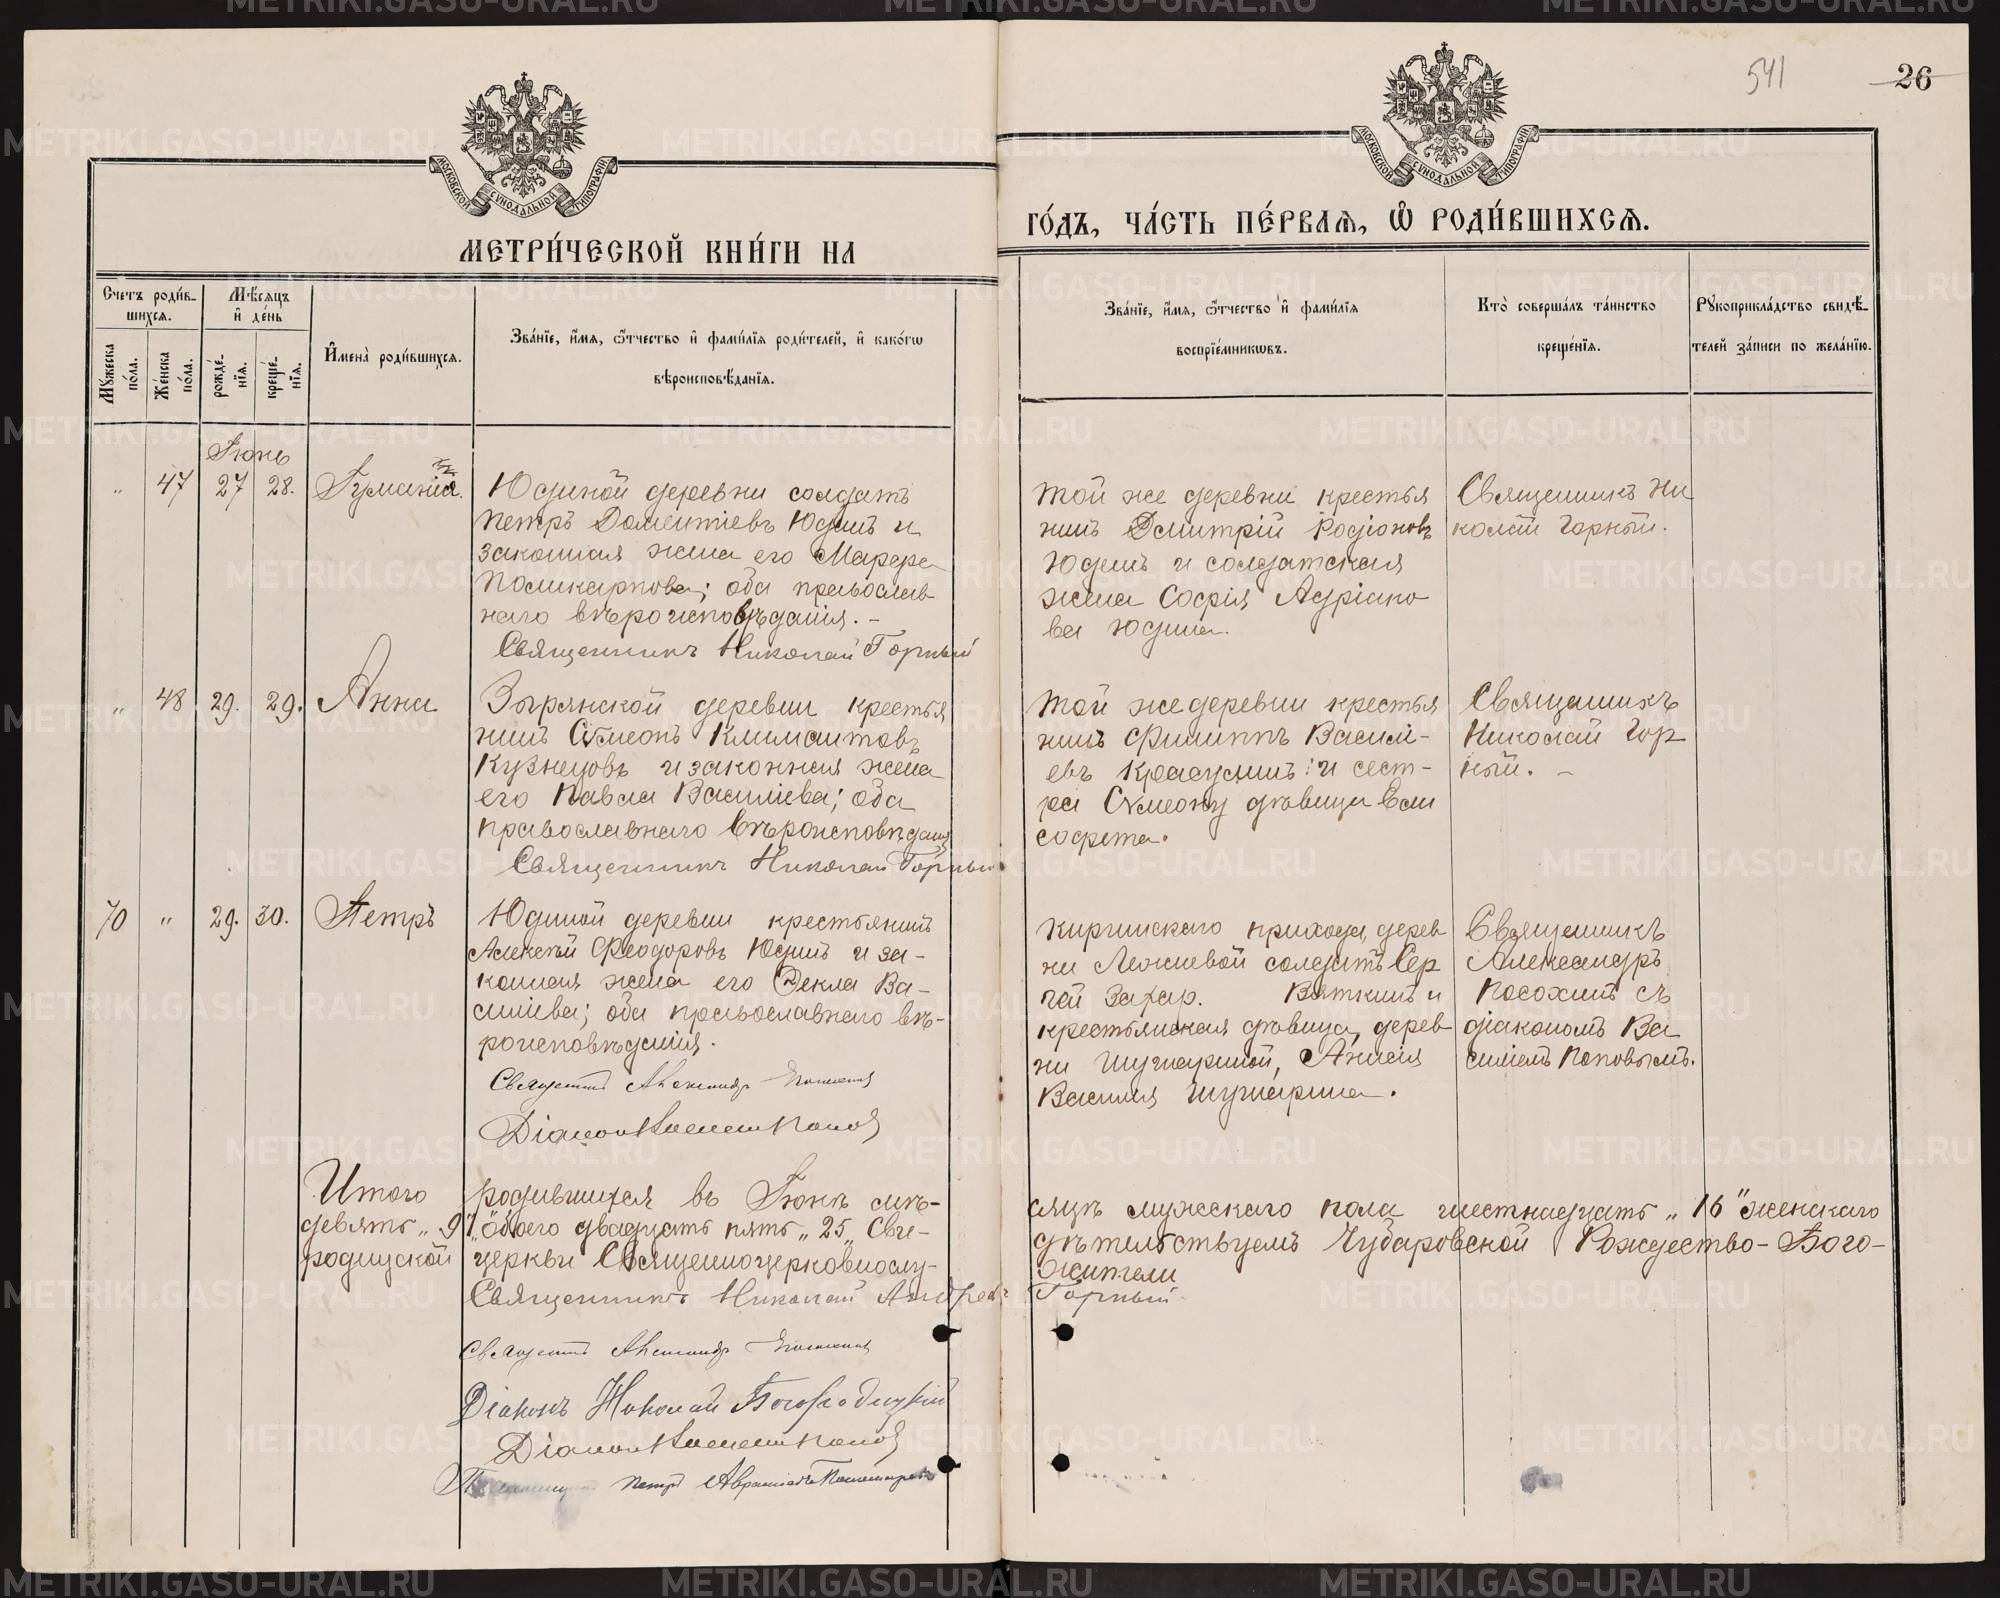 541
26
МОСКОВСКОЙ СѴНОДАЛЬНОЙ ТИПОГРАФІИ
МОСКОВСКОЙ СѴНОДАЛЬНОЙ ТИПОГРАФІИ
МЕТРИ́ЧЕСКОЙ КНИ́ГИ НА
ГО́ДЪ, ЧА́СТЬ ПЕ́РВАѦ, Ѽ РОДИ́ВШИХСѦ.
Счетъ роди́в-
шихсѧ.
Мꙋжеска по́ла.
Же́нска по́ла.
Мѣ́сѧцъ
и҆ де́нь
рожде́нїѧ.
креще́нїѧ.
И҆мена̀ роди́вшихсѧ.
Зва́нїе, и҆́мѧ, ѻ҆́тчество и҆ фами́лїѧ роди́телей, и҆ како́гѡ
вѣроисповѣ́данїѧ.
Зва́нїе, и҆́мѧ, ѻ҆́тчество и҆ фами́лїѧ
воспрїе́мникѡвъ.
Кто̀ соверша́лъ та́инство
креще́нїѧ.
Рꙋкоприкла́дство свидѣ́-
телей за́писи по жела́нїю.
Іюнь
„ 47 27 28. Іуманія.
Юдиной деревни солдатъ
Петръ Дометіевъ Юдинъ и
законная жена его Марфа
Поликарпова; оба православ-
наго вѣроисповѣданія. –
Священникъ Николай Горный
Той же деревни крестья
нинъ Дмитрій Родіоновъ
Юдинъ и солдатская
жена Софія Адріано
ва Юдина.
Священникъ Ни
колай Горный.
„ 48 29. 29. Анна
Зырянской деревни крестья
нинъ Сѵмеонъ Климантовъ
Кузнецовъ и законная жена
его Павла Василіева; оба
православнаго вѣроисповѣданія
Священникъ Николай Горный
Той же деревни крестья
нинъ Филиппъ Василі-
евъ Красулинъ и сест-
ра Сѵмеону дѣвица Ели
софета.
Священникъ
Николай Гор
ный. –
70 „ 29. 30. Петръ
Юдиной деревни крестьянинъ
Алексѣй Феодоровъ Юдинъ и за-
конная жена его Фекла Ва-
силіева; оба православнаго вѣ-
роисповѣданія.
Священникъ Александръ
Діаконъ Попов
Киргинскаго прихода, дерев
ни солдатъ Сер
гѣй Захар. Вяткинъ и
крестьянская дѣвица, дерев
ни Шумариной, Анисія
Василія Шумарина.
Священникъ
Александръ
Посохинъ съ
діакономъ Ва
силіемъ Поповымъ.
Итого родившихся въ Іюнѣ мѣ-
сяцѣ мужескаго пола шестнадцать „ 16 " женскаго
девять „ 9 " обоего двадцать пять „ 25 „ Сви-
дѣтельствуемъ Чубаровской Рождество-Бого-
родицской церкви Священноцерковнослу-
жители
Священникъ Николай Андреевъ Горный.
Священникъ Александръ
Діаконъ Николай Богородицкій
Діаконъ Попов
Петръ
METRIKI.GASO-URAL.RU